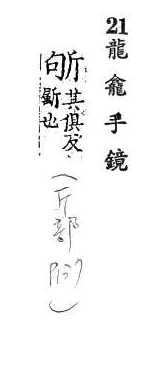 21 龍龕手鏡
斪其俱反、
斸也
（斤部 P137）